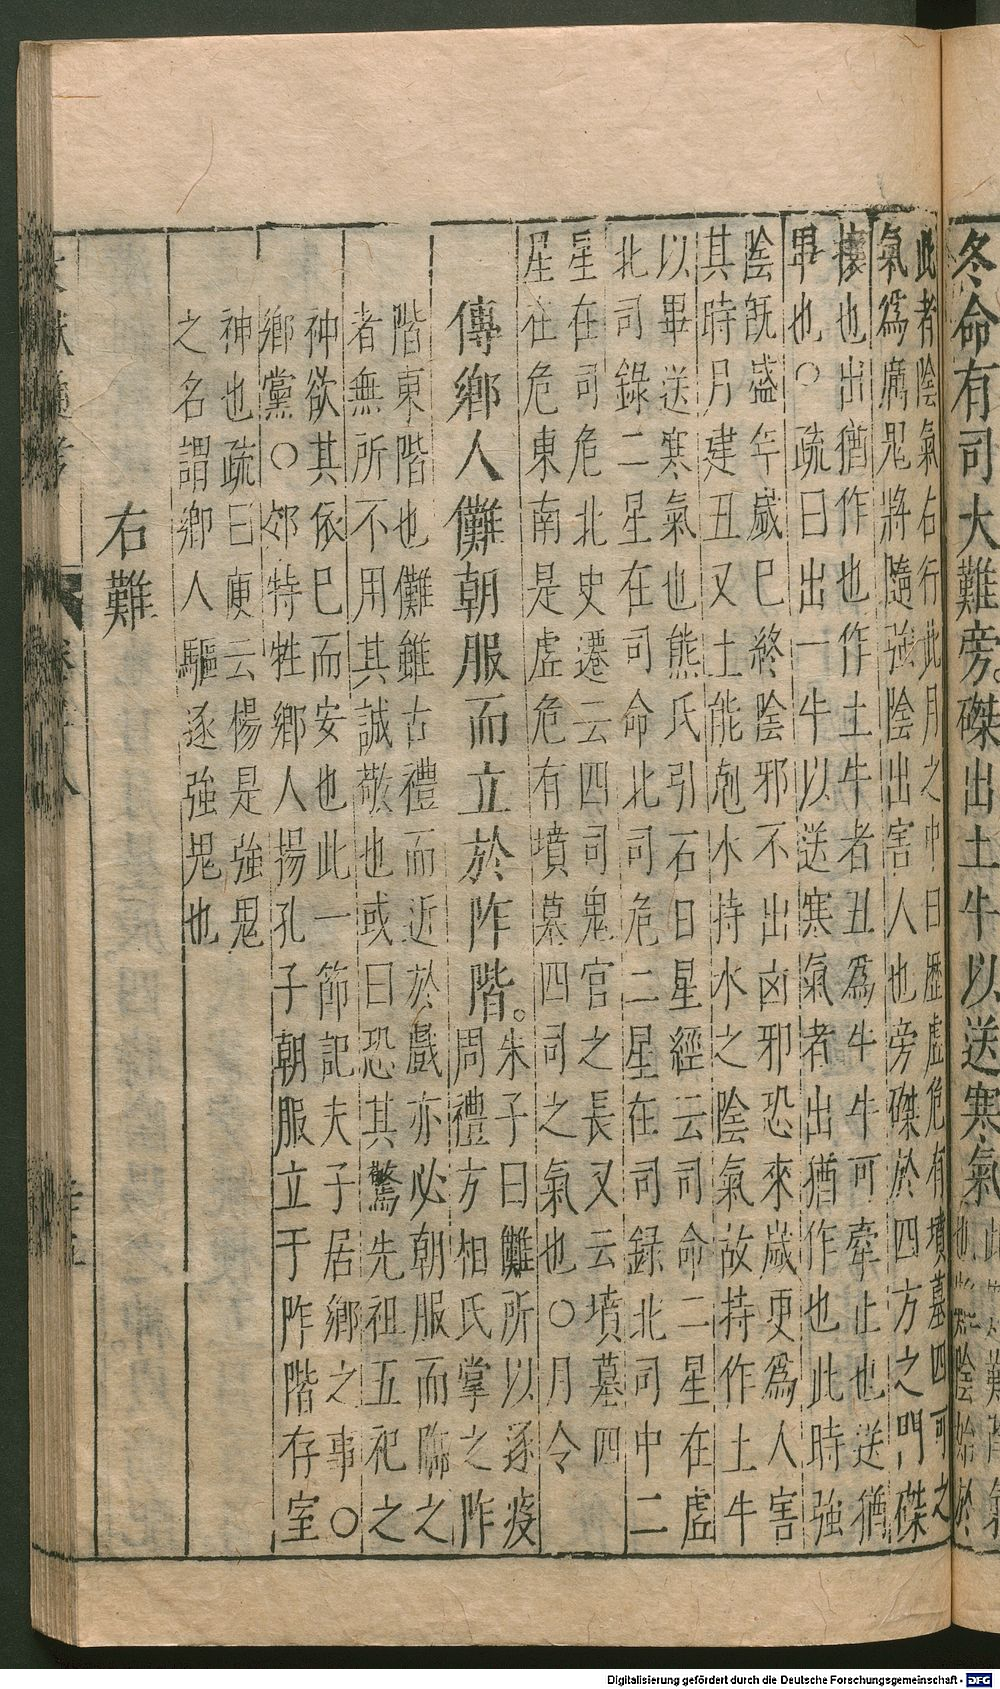 冬命有司大難旁磔出土牛以送寒氣
此者陰氣右行此月之中日歷虛危有墳墓四司之
氣爲厲鬼將隨強陰出害人也旁磔於四方之門磔
攘也出猶作也作土牛者丑爲牛牛可牽止也送猶
畢也○疏曰出一牛以送寒氣者出猶作也此時強
陰旣盛年歲巳終陰邪不出凶邪恐來歲更爲人害
其時月建丑又土能剋水持水之陰氣故持作土牛
以畢送寒氣也熊氏引石日星經云司命二星在虛
北司錄二星在司命北司危二星在司錄北司中二
星在司危北史遷云四司鬼官之長又云墳墓四
星在危東南是虛危有墳墓四司之氣也○月令
傳鄉人儺朝服而立於阼階。
朱子曰儺所以逐疫
周禮方相氏掌之阼
階東階也儺雖古禮而近於戲亦必朝服而臨之
者無所不用其誠敬也或曰恐其驚先祖五祀之
神欲其依巳而安也此一節記夫子居鄉之事○
鄉黨○郊特牲鄉人揚孔子朝服立于阼階存室
神也疏曰庾云楊是強鬼
之名謂鄉人驅逐強鬼也
右難
Digitalisierung gefördert durch die Deutsche Forschungsgemeinschaft - DFG